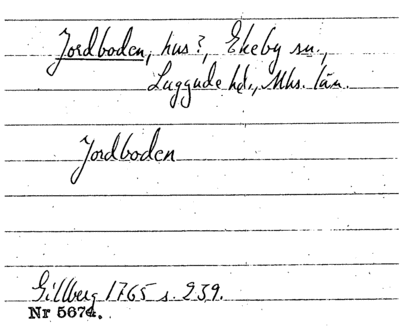 Jordboden, hus?, Ekeby sn.,
Luggude hd., Mhs. län.
Jordboden
Gillberg 1765 s. 239.
Nr 5674.